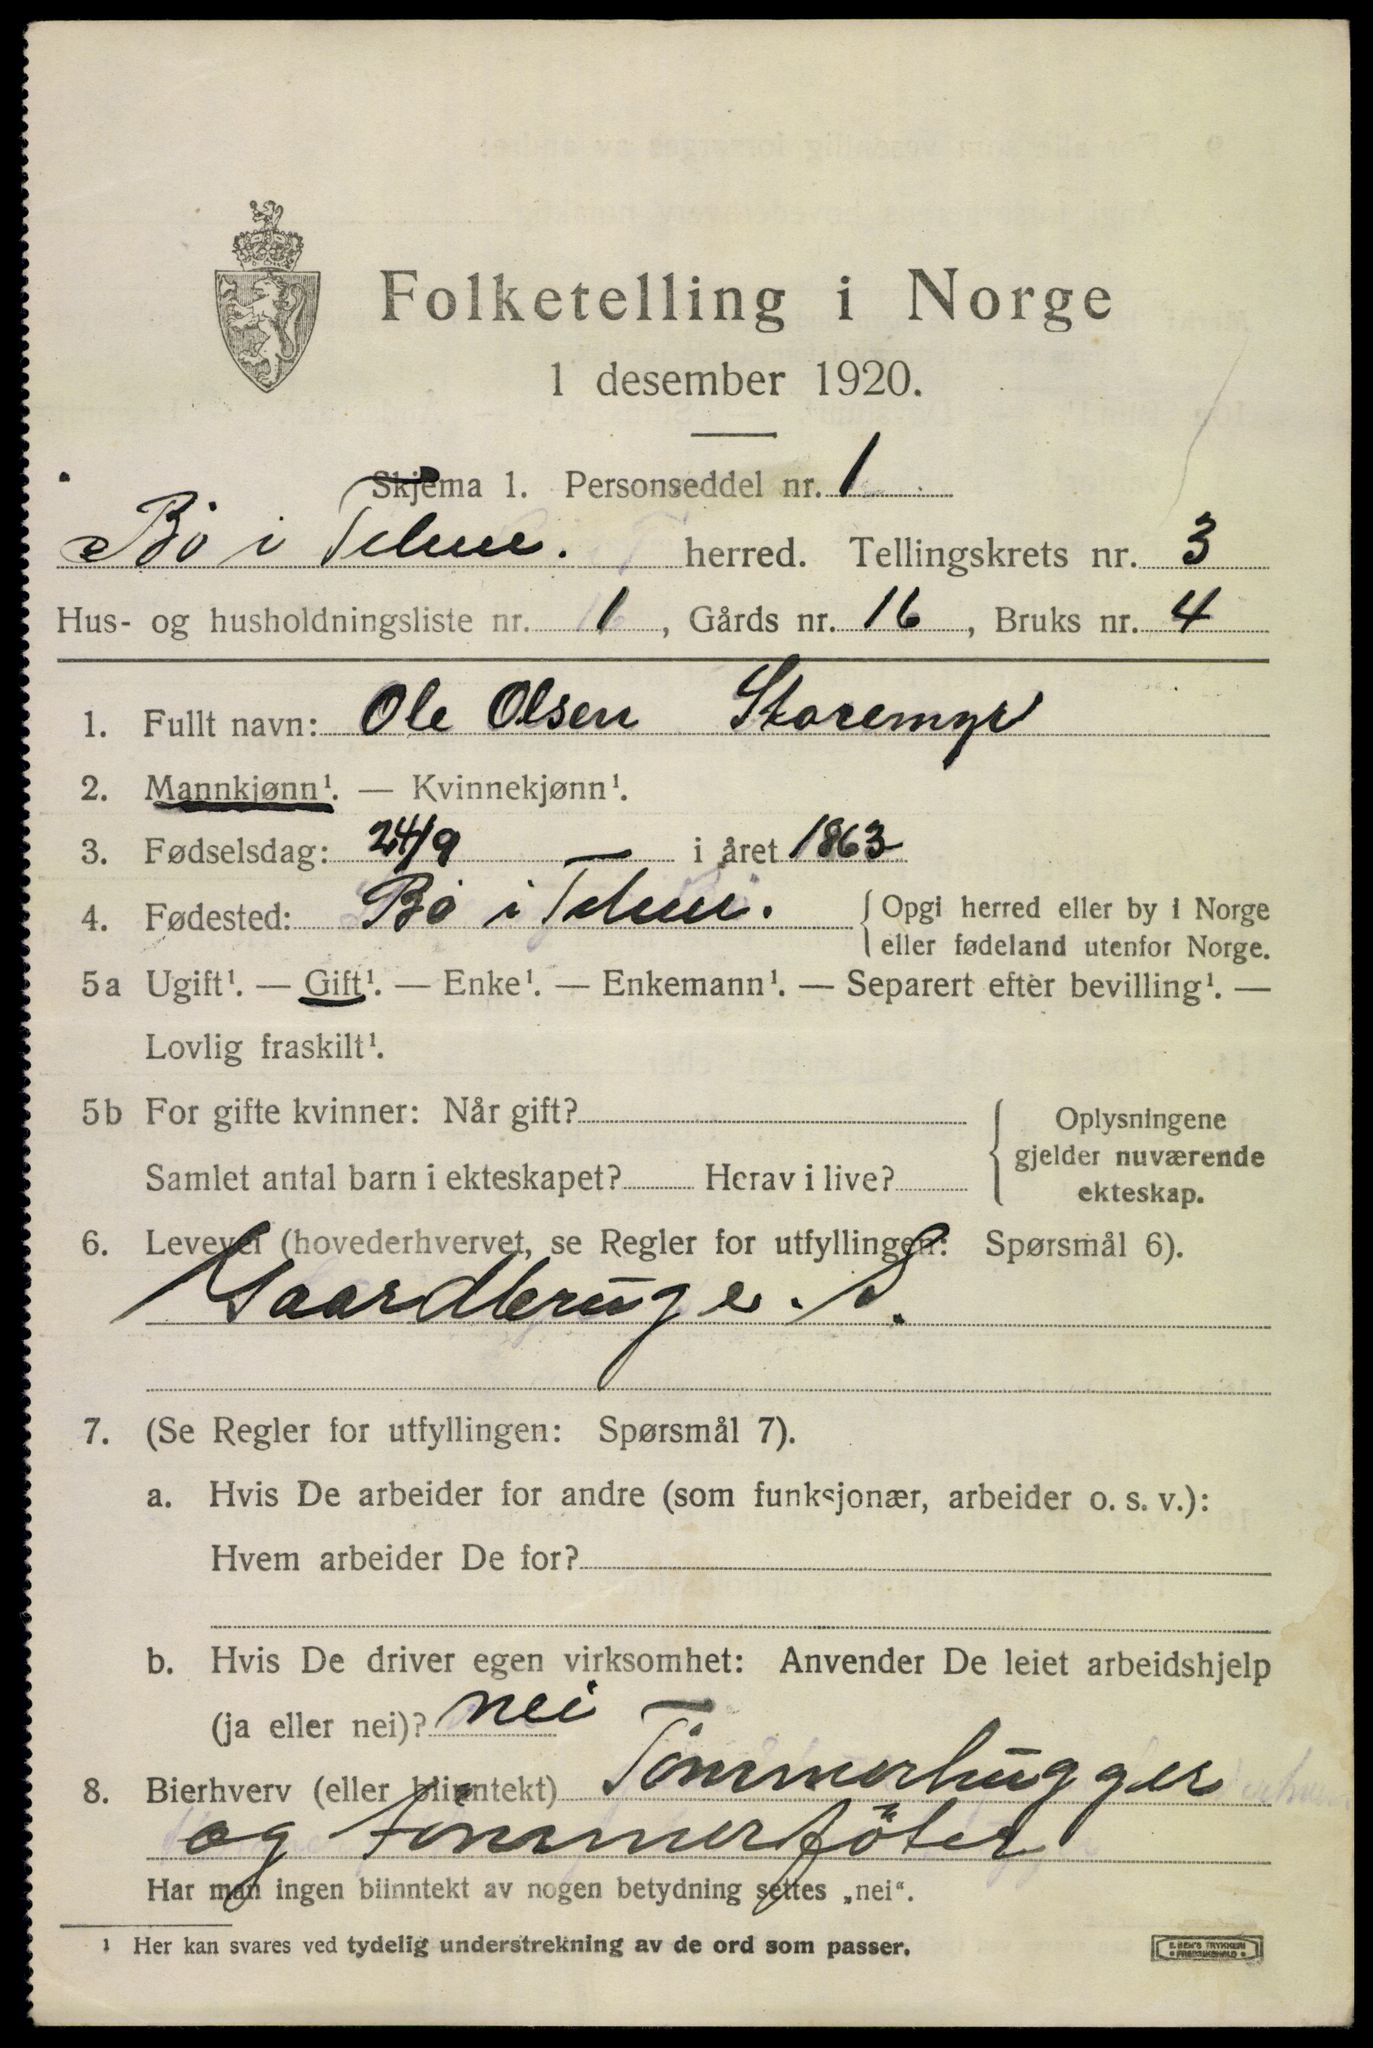 Folketelling i Norge
1 desember 1920.
Skjema 1. Personseddel nr. 1
Bö i Telem. herred. Tellingskrets nr. 3
Hus- og husholdningsliste nr. 1, Gårds nr. 16, Bruks nr. 4
1. Fullt navn: Ole Olsen Staremyr
2. Mannkjønn¹. — Kvinnekjønn¹.
3. Fødselsdag: 24/9 i året 1863
4. Fødested: Bö i Telem. { Opgi herred eller by i Norge
eller fødeland utenfor Norge.
5a Ugift¹. — Gift¹. — Enke¹. — Enkemann¹. — Separert efter bevilling¹. —
Lovlig fraskilt¹.
5b For gifte kvinner: Når gift?
Samlet antal barn i ekteskapet? Herav i live?
Oplysningene
gjelder nuværende
ekteskap.
6. Levevei (hovederhvervet, se Regler for utfyllingen: Spørsmål 6).
Gaardbruger. S.
7. (Se Regler for utfyllingen: Spørsmål 7).
a. Hvis De arbeider for andre (som funksjonær, arbeider o. s. v.):
Hvem arbeider De for?
b. Hvis De driver egen virksomhet: Anvender De leiet arbeidshjelp
(ja eller nei)? nei
8. Bierhverv (eller biinntekt) Tömmerhugger
og tömmerflöter
Har man ingen biinntekt av nogen betydning settes „nei“.
¹ Her kan svares ved tydelig understrekning av de ord som passer.
E. SEM'S TRYKKERI
FREDRIKSHALD